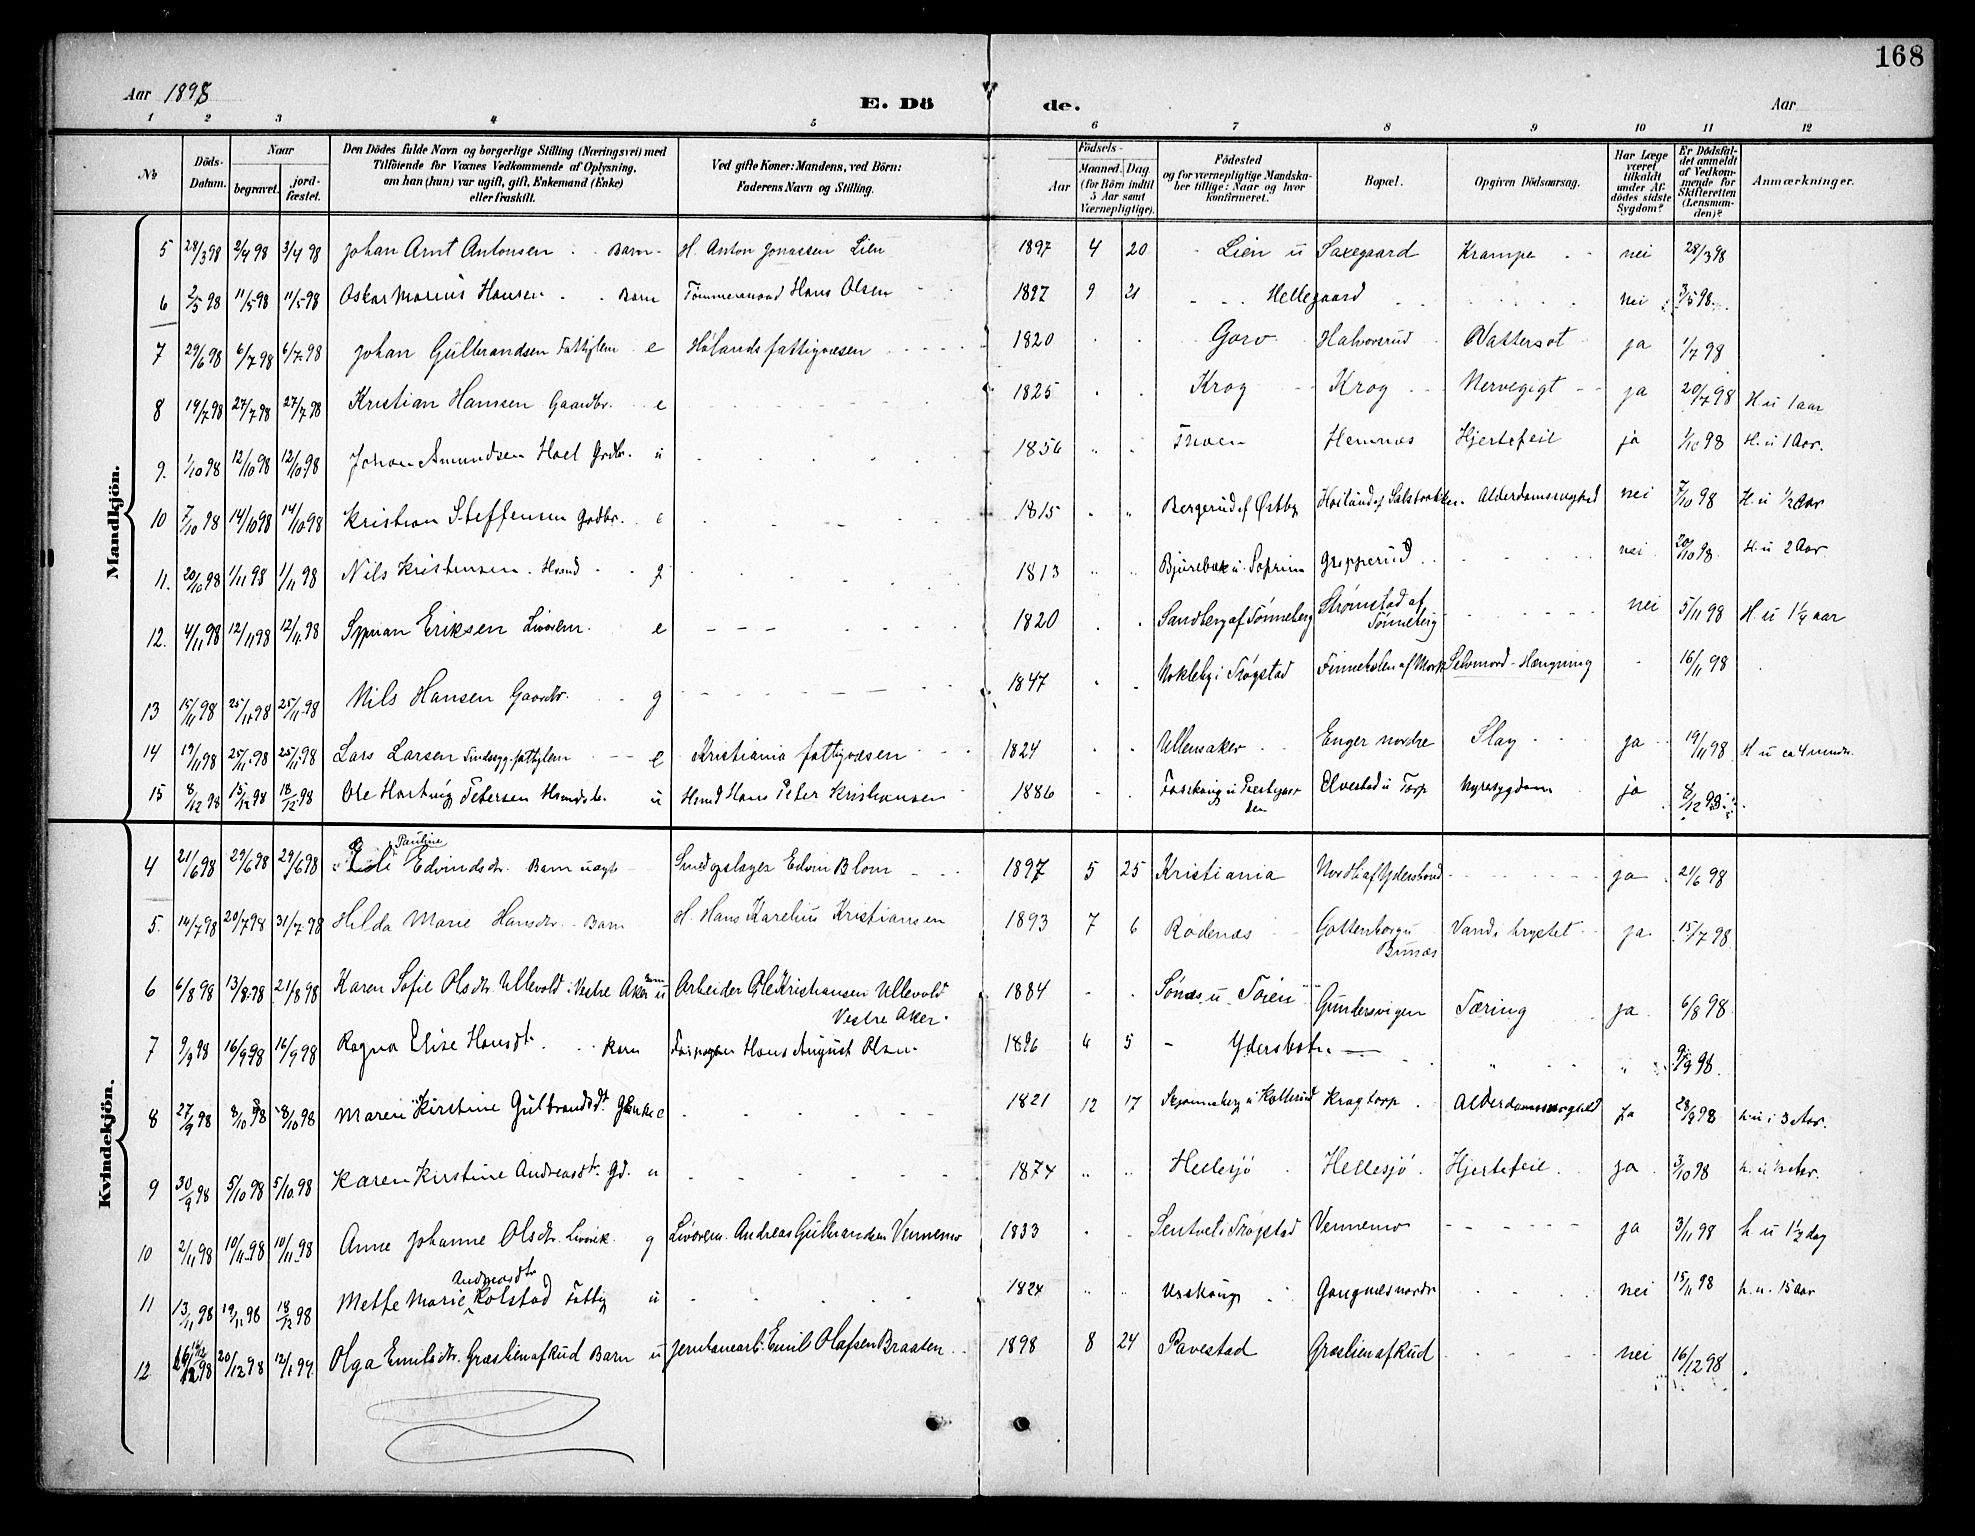 168
Aar 1898
E. Döde.
Aar
1 2 3 4 5 6 7 8 9 10 11 12
No
Döds-Datum.
Naar
begravet.
jordfæstet.
Den Dödes fulde Navn og borgerlige Stilling (Næringsvei) med Tilföiende for Voxnes Vedkommende af Oplysning, om han (hun) var ugift, gift, Enkemand (Enke) eller fraskilt.
Ved gifte Koner: Mandens, ved Börn: Faderens Navn og Stilling.
Födsels-
Aar
Maaned. Dag
(for Börn indtil 5 Aar samt Værnepligtige).
Födested og for værnepligtige Mandskaber tillige: Naar og hvor konfirmeret.
Bopæl.
Opgiven Dödsaarsag.
Har Læge været tilkaldt under Afdödes sidste Sygdom?
Er Dödsfaldet anmeldt af Vedkommende for Skifteretten (Lensmanden)?
Anmærkninger.
Mandkjön.
5 28/3 98 2/4 98 3/4 98 Johan Arnt Antonsen Barn H. Anton Jonassen Lien 1897 4 20 Lien u Saxegaard Krampe nei 28/3 98
6 2/5 98 11/5 98 11/5 98 Oskar Marius Hansen Barn Tømmermand Hans Olsen 1897 9 21 Hellegaard nei 3/5 98
7 29/6 98 6/7 98 6/7 98 Johan Gulbrandsen Fattiglem e Hølands fattigvæsen 1820 Gorv Halvorsrud Vattersot ja 1/7 98
8 19/7 98 27/7 98 27/7 98 Kristian Hansen Gaardbr. e 1825 Krog Krog Nervegigt ja 20/7 98 H. u 1 aar
9. 1/10 98 12/10 98 12/10 98 Johan Amundsen Hoel Grdbr. u 1856 Hemnæs Hjertefeil ja 1/10 98 H. u 1 Aar.
10 7/10 98 14/10 98 14/10 98 Kristian Steffensen Grdbr. e 1815 Bergerud af Østby Alderdomssvaghed nei 7/10 98 H. u 1/2 Aar
11. 20/10 98 1/11 98 1/11 98 Nils Kristensen Hsmd g 1813 Gropperud nei 20/10 98 H. u 2 Aar
12. 4/11 98 12/11 98 12/11 98 Syprian Eriksen Livørem. e 1820 Sandberg af Tønneberg Strømstad af Tønneberg nei 5/11 98 H. u 1 1/4 aar
13 15/11 98 25/11 98 25/11 98 Nils Hansen Gaardbr. g 1847 Nokleby i Trøgstad Finneholen af Mork Selvmord - Hængning 16/11 98
14 19/11 98 25/11 98 25/11 98 Lars Larsen Sindssyg. fattiglem e Kristiania fattigvæsen 1824 Ullensaker Enger nordre Slag ja 19/11 98 H u ca 4 mndr.
15 8/12 98 15/12 98 18/12 98 Ole Hartvig Petersen u Hsmd Hans Peter Kristiansen 1886 Elvestad u Torp Nyresygdom ja 8/12 98
Kvindekjön.
4 21/6 98 29/6 98 29/6 98 Pauline Edvindsdr. Barn uægte Edvin Blom 1897 5 25 Kristiania Nordli af Ydersbond ja 21/6 98
5. 14/7 98 20/7 98 31/7 98 Hilda Marie Hansdtr. Barn H. Hans Karelius Kristiansen 1893 7 6 Rødenæs Gottenborg u Bunæs Vand i brystet ja 15/7 98
6 6/8 98 13/8 98 21/8 98 Karen Sofie Olsdtr. Ullevold i Vestre Aker Barn u Arbeider Ole Kristiansen Ullevold Vestre Aker. 1884 Sønæs u. Toien Gundersvigen Tæring ja 6/8 98
7 9/9 98 16/9 98 16/9 98 Ragna Elise Hansdt. Barn Forpagter Hans August Olsen 1896 6 5 Ydersbotn 9/9 98
8 27/9 98 8/10 98 8/10 98 Maren Kirstine Gulbrandsdt. e 1821 12 17 Skjønneberg u Kollerud Kragtorp Alderdomssvaghed ja 28/9 98 h. u i 3 Aar.
9 30/9 98 5/10 98 5/10 98 Karen Kirstine Andreasdt. Gd. u 1874 Hellesjö Hellesjö Hjertefeil ja 3/10 98
10 2/11 98 10/11 98 10/11 98 Anne Johanne Olsdtr. g Livørem. Andreas Gulbrandsen Vennemo 1833 Sentvet i Trøgstad Vennemo ja 3/11 98 h. u 1 1/2 dag
11 13/11 98 19/11 98 18/12 98 Mette Marie Andreasdtr Kolstad Fattig u 1824 Gangnæs nordr nei 15/11 98 h. u. 15 aar
12 98 20/12 98 12/1 99 Olga Emilsdtr. Græslien af Rud Barn u Jernbanearb. Emil Olafsen Braaten 1898 8 24 Pavestad Græslien af Rud nei 16/12 98